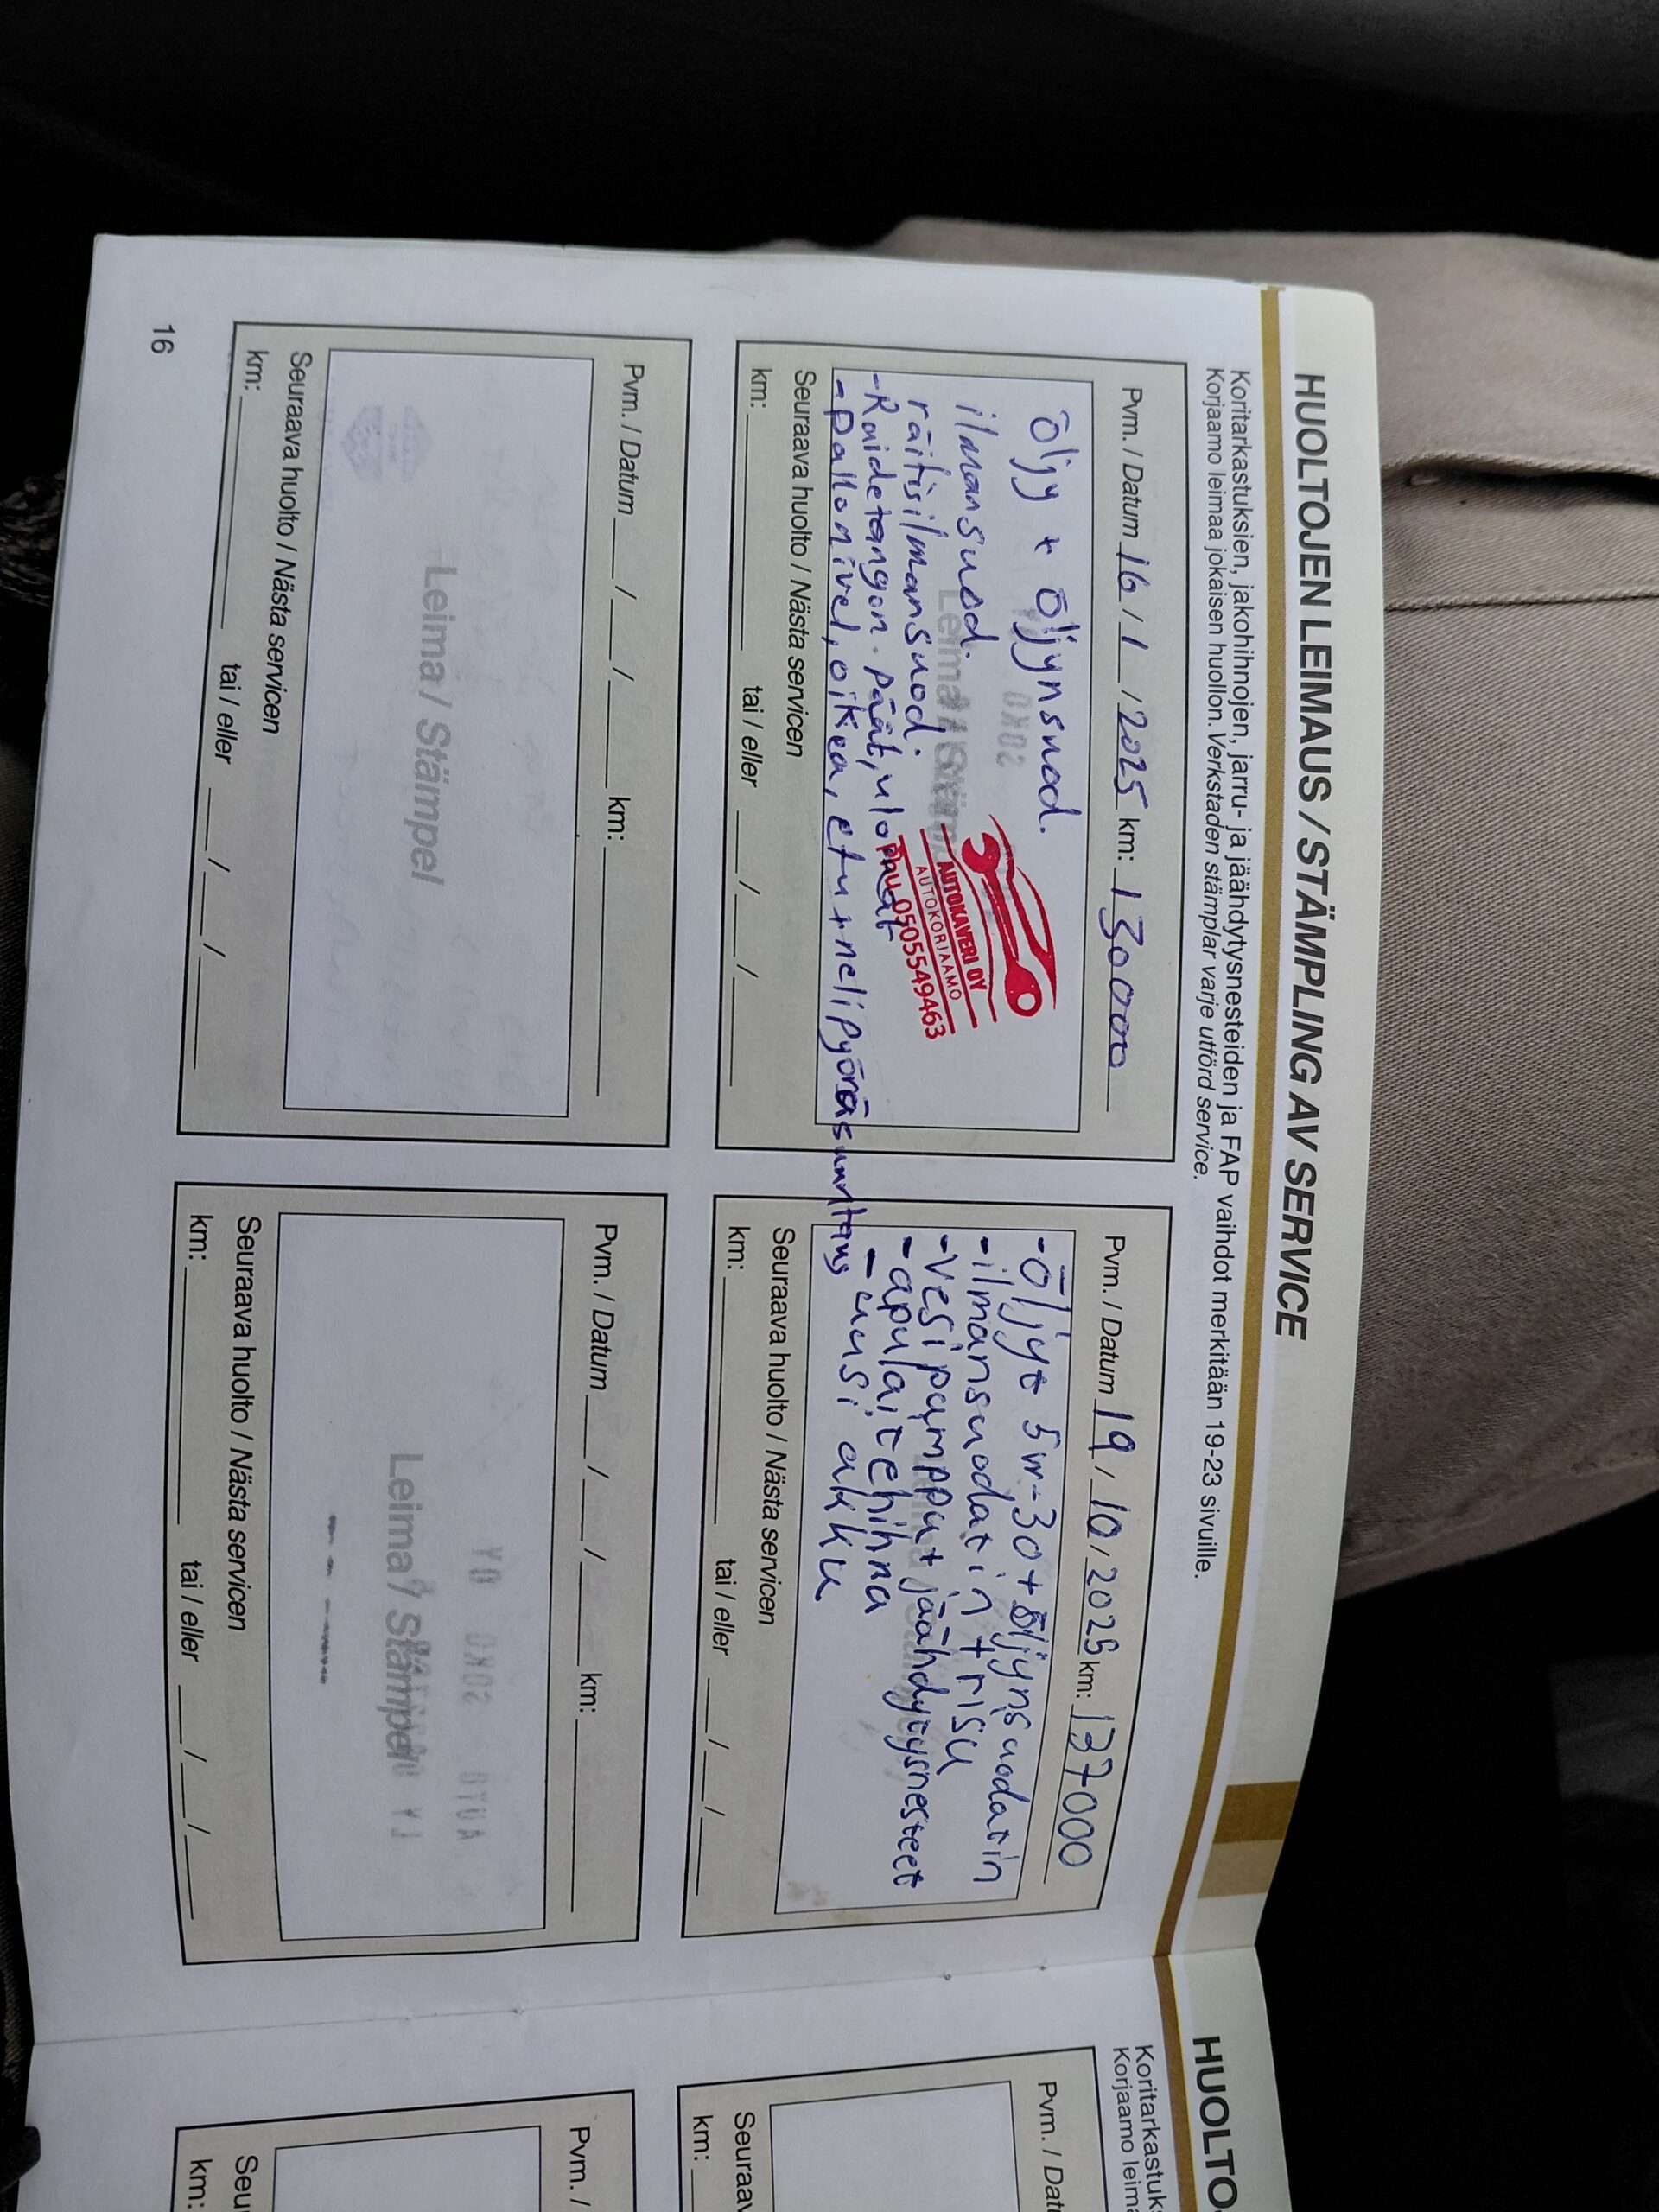 HUOLTOJEN LEIMAUS / STÄMPLING AV SERVICE
Koritarkastuksien, jakohihnojen, jarru- ja jäähdytysnesteiden ja FAP vaihdot merkitään 19-23 sivuille.
Korjaamo leimaa jokaisen huollon. Verkstaden stämplar varje utförd service.
Pvm. / Datum 16 / 1 / 2025 km: 130000
öljy + öljynsuod.
ilmansuod.
räitisilmansuod.
-Raidetangon. päät, ulommat
-pallonivel, oikea, etu + nelipyöräsuuntaus
Leima / Stämpel
AUTOKAVERI OY
AUTOKORJAAMO
PUH. 0505549463
Seuraava huolto / Nästa servicen
km: tai / eller / /
Pvm. / Datum 19 / 10 / 2025 km: 137000
-öljyt 5w-30 + öljynsuodatin
-ilmansuodatin + risu
-vesipumppu + jäähdytysnesteet
-apulaitehihna
-uusi akku
Seuraava huolto / Nästa servicen
km: tai / eller / /
Pvm. / Datum / / km:
Leima / Stämpel
Seuraava huolto / Nästa servicen
km: tai / eller / /
Pvm. / Datum / / km:
Leima / Stämpel
Seuraava huolto / Nästa servicen
km: tai / eller / /
16
HUOLTO
Koritarkastuk
Korjaamo leima
Pvm. / Datu
Seuraav
km:
Pvm. /
Seu
km: